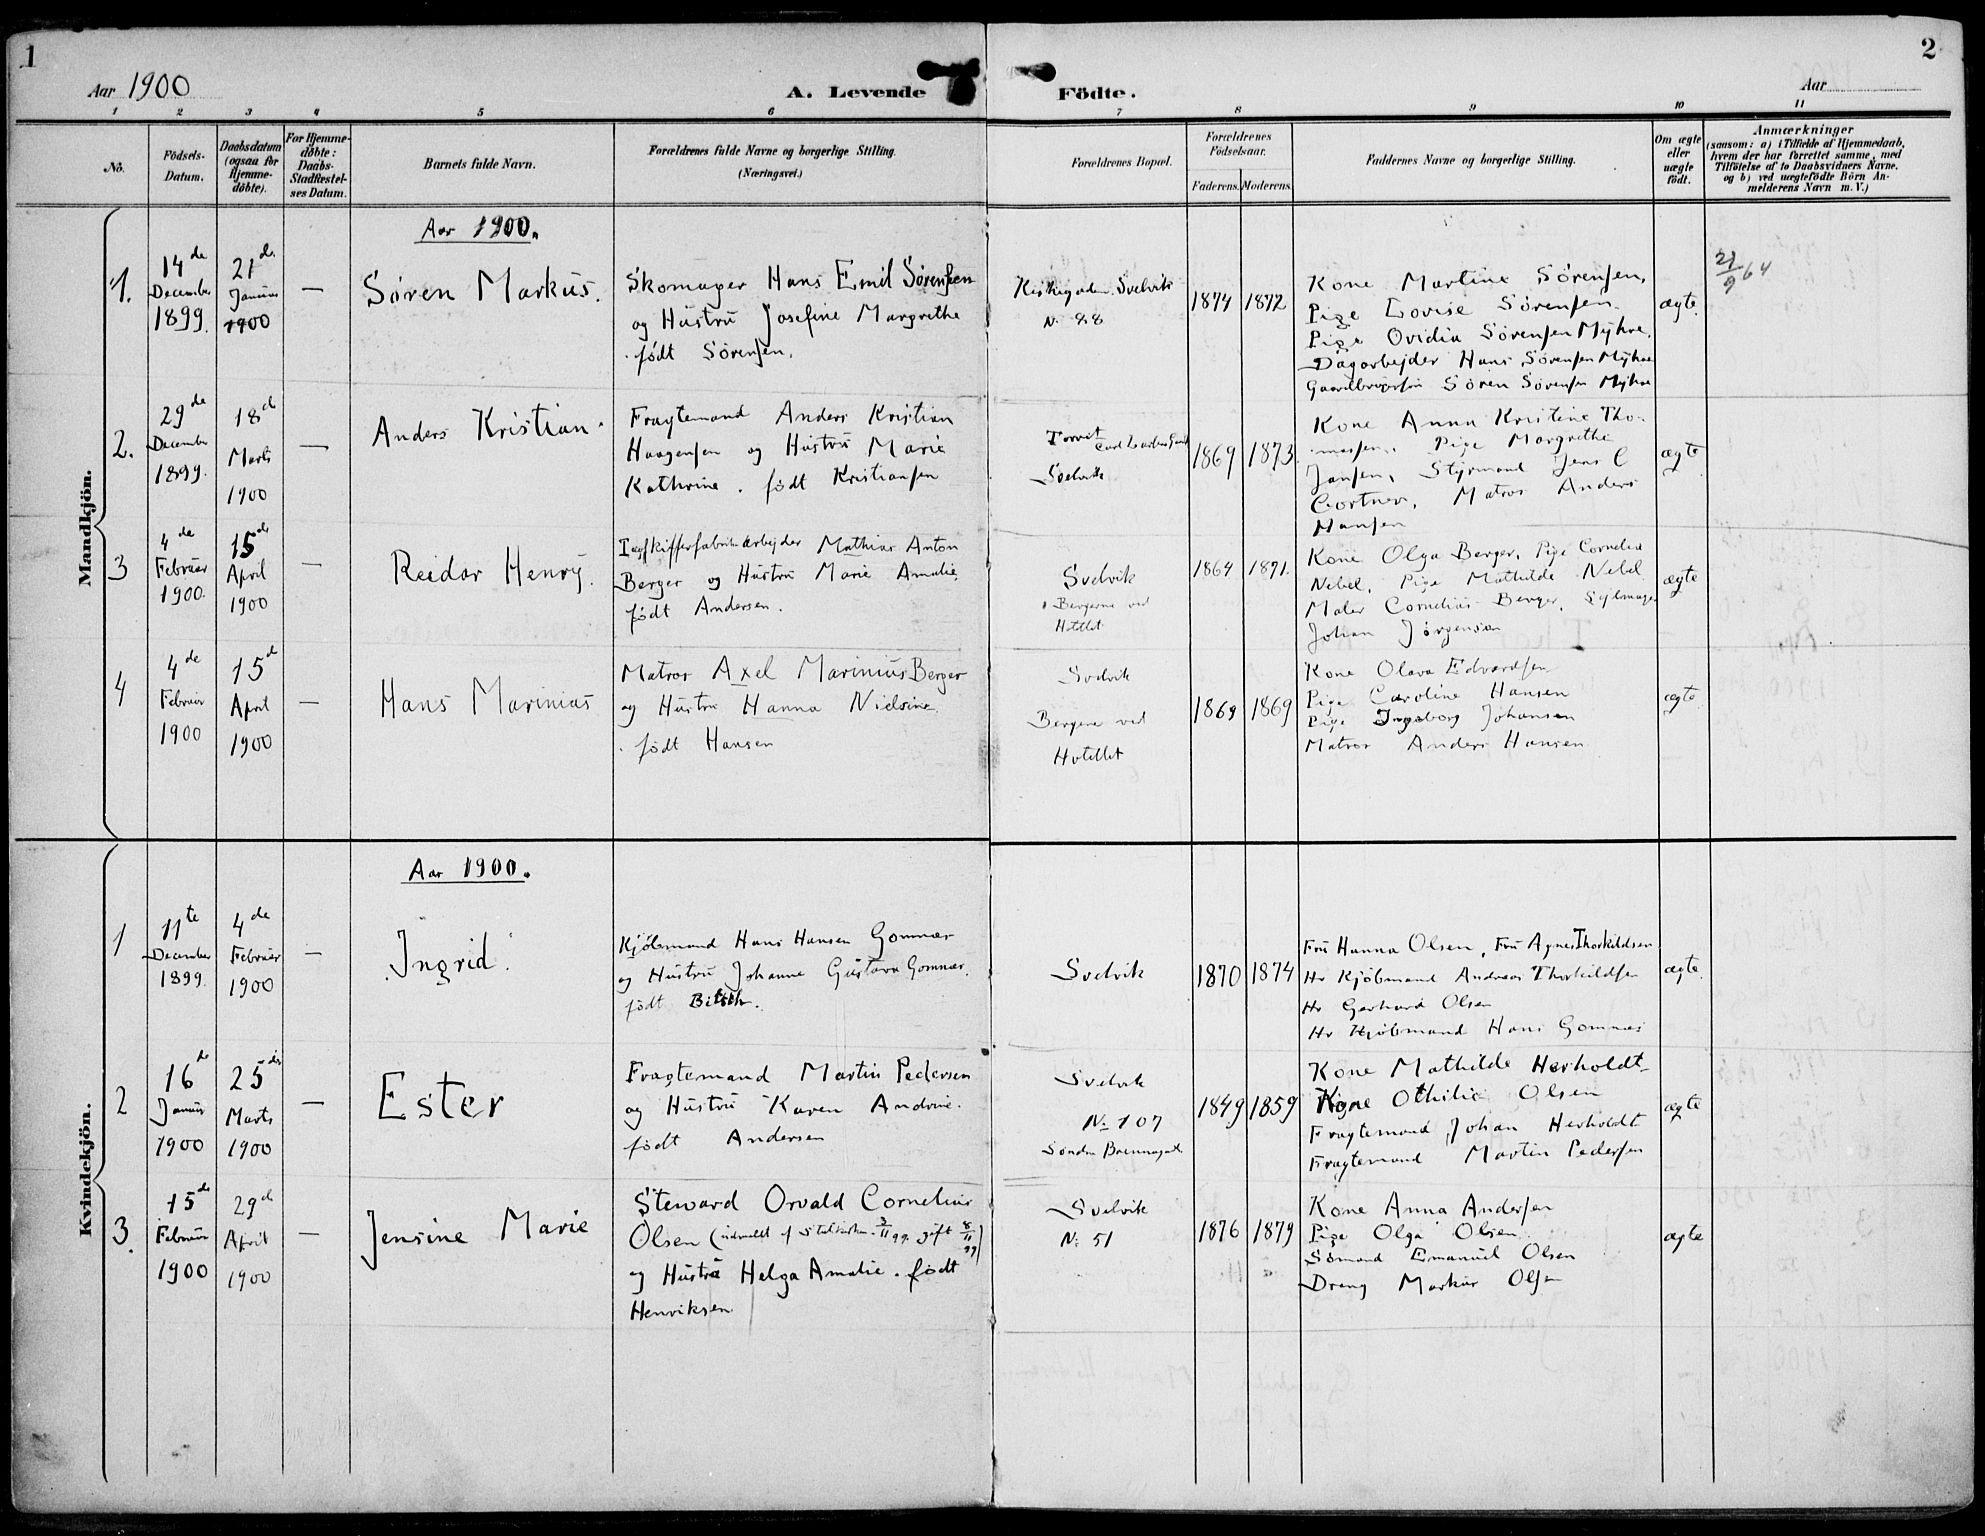 1
2
Aar 1900
A. Levende Födte.
Aar
1 2 3 4 5 6 7 8 9 10 11
No.
Födsels-Datum.
Daabsdatum (ogsaa for Hjemme-döbte).
For Hjemme-döbte: Daabs-Stadfæstel-ses Datum.
Barnets fulde Navn.
Forældrenes fulde Navne og borgerlige Stilling.
(Næringsvei.)
Forældrenes Bopæl.
Forældrenes Födselsaar.
Faderens. Moderens.
Faddernes Navne og borgerlige Stilling.
Om ægte eller uægte födt.
Anmærkninger
(saasom: a) i Tilfælde af Hjemmedaab,
hvem der har forrettet samme, med
Tilföielse af to Daabsvidners Navne,
og b) ved uægtefödte Börn An-
melderens Navn m. V.)
Mandkjön.
Aar 1900.
1.
14de December 1899.
21de Januar 1900
—
Søren Markus.
Skomager Hans Emil Sørensen
og Hustru Josefine Margrethe
født Sørensen.
Kirkegaden Svelvik
No 88
1874
1872
Kone Martine Sørensen,
Pige Lovise Sørensen
Pige Ovidia Sørensen Myhre.
Dagarbejder Hans Sørensen Myhre
Søren Sørensen Myhre
ægte.
21/9 64
2.
29de December 1899.
18de Marts 1900
—
Anders Kristian.
Fragtemand Anders Kristian
Haagensen og Hustru Marie
Kathrine. født Kristiansen
Torvet
Svelvik
1869
1873
Kone Anna Kristine Tho-
massen, Pige Margrethe
Jansen, Styrmand Jens C
Gortner, Matros Anders
Hansen
ægte
3
4de Februar 1900.
15de April 1900
—
Reidar Henry.
Mathias Anton
Berger og Hustru Marie Amalie,
født Andersen.
Svelvik
Bergerne ved
Hotellet
1864
1871.
Kone Olga Berger, Pige Cornelia
Nebel, Pige Mathilde Nebel
Maler Cornelius Berger, Sejlmager
Johan Jørgensen
ægte
4
4de Februar 1900
15de April 1900
—
Hans Marinius
Matros Axel Marinius Berger
og Hustru Hanna Nielsine
født Hansen
Svelvik
Bergene ved
Hotellet
1869
1869
Kone Olava Edvardsen
Pige Caroline Hansen
Pige Ingeborg Johansen
Matros Anders Hansen
ægte
Kvindekjön.
Aar 1900.
1
11te December 1899.
4de Februar 1900
—
Ingrid.
Kjøbmand Hans Hansen Gomnæs
og Hustru Johanne Gustava Gomnæs.
født
Svelvik
1870
1874
Fru Hanna Olsen, Fru Agnes Thorkildsen
Hr Kjøbmand Andreas Thorkildsen
Hr Gerhard Olsen
Hr Kjøbmand Hans Gomnæs
ægte
2
16de Januar 1900
25de Marts 1900
—
Ester
Fragtemand Martin Pedersen
og Hustru Karen Andrine.
født Andersen
Svelvik
No 107
Søndre
1849
1859
Kone Mathilde Herholdt
Kone Othilie Olsen
Fragtemand Johan Herholdt
Fragtemand Martin Pedersen
ægte
3.
15de Februar 1900
29de April 1900
—
Jensine Marie
Steward Orvald Cornelius
Olsen (udmeldt af Statskirken 3/11 99. gift 8/11 99)
og Hustru Helga Amalie. født
Henriksen
Svelvik
No 51
1876
1879
Kone Anna Andersen
Pige Olga Olsen
Sømand Emanuel Olsen
Dreng Markus Olsen
ægte